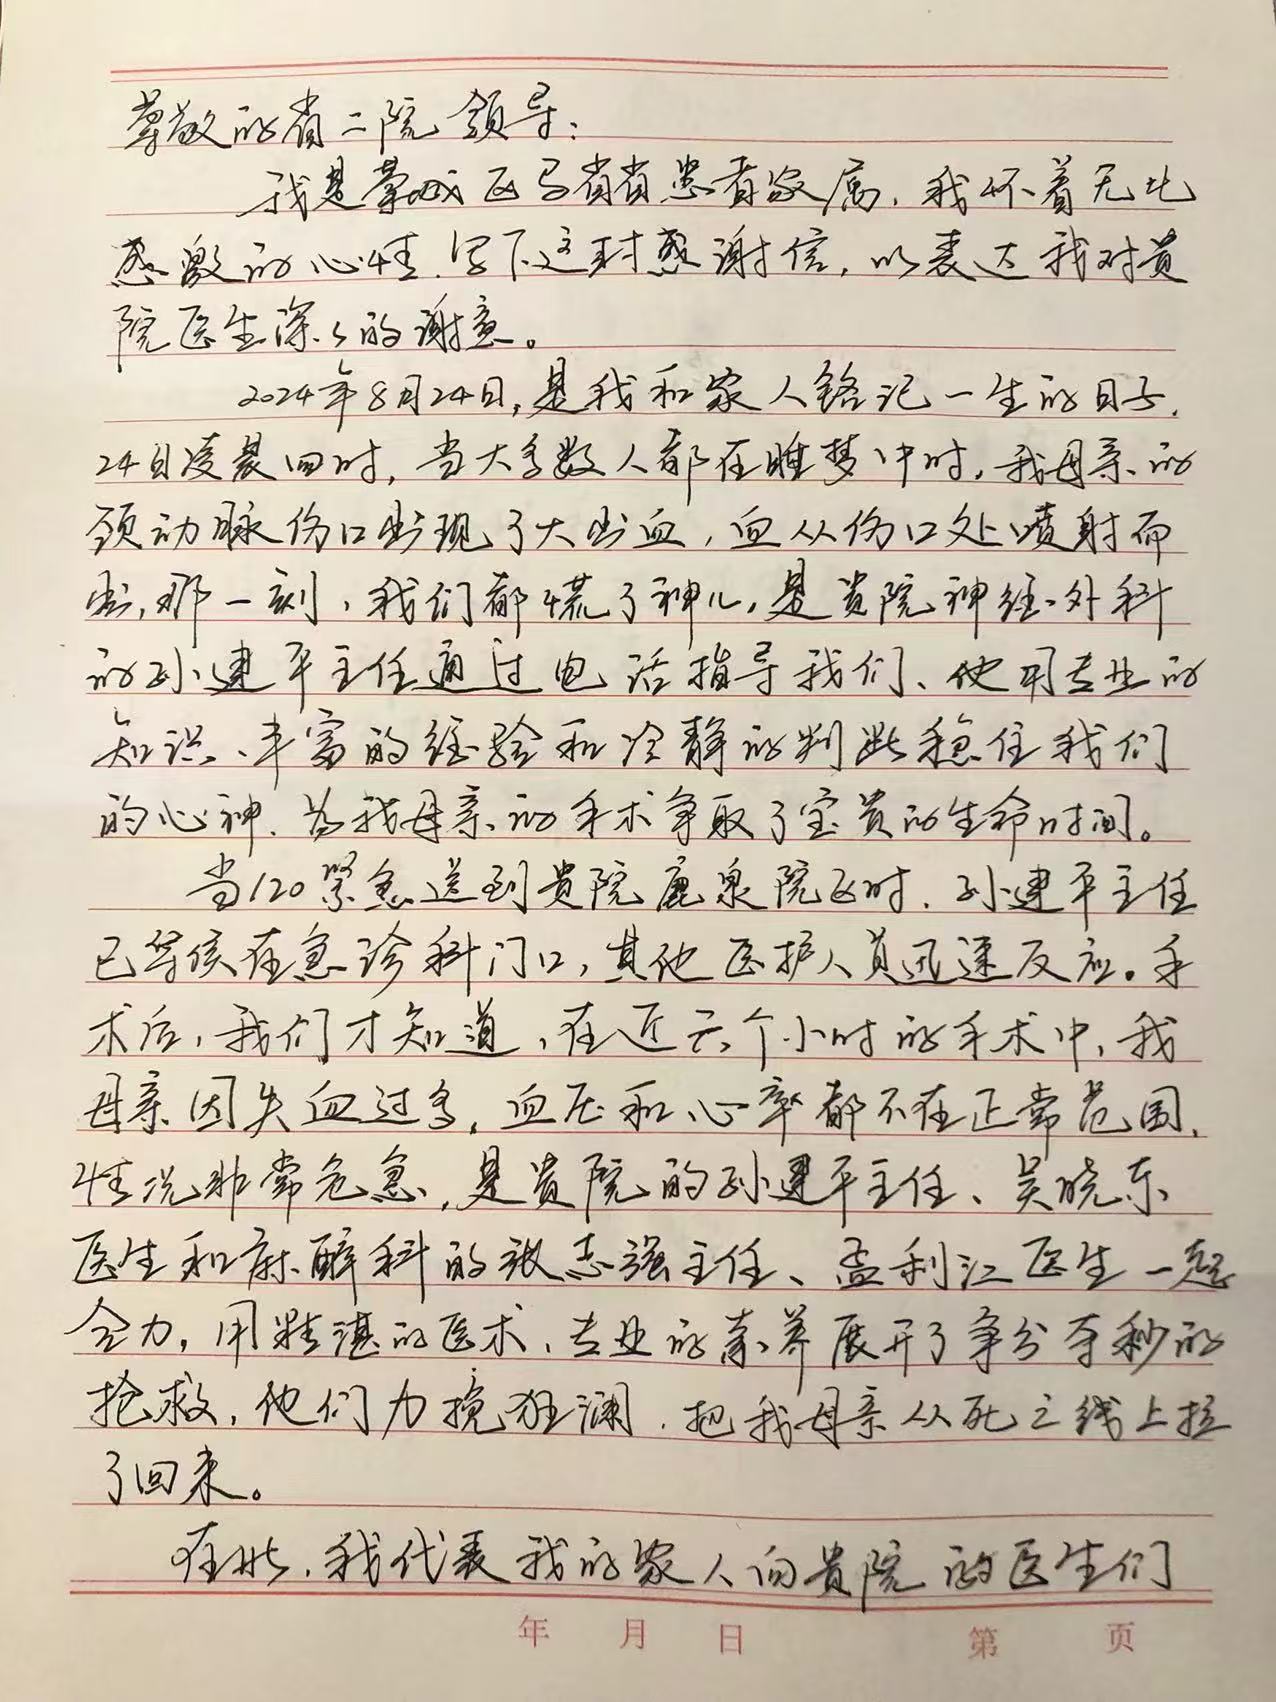 尊敬的省二院领导：
我是藁城区马省省患者家属，我怀着无比
感激的心情，写下这封感谢信，以表达我对贵
院医生深深的谢意。
2024年8月24日，是我和家人铭记一生的日子，
24日凌晨四时，当大多数人都在睡梦中时，我母亲的
颈动脉伤口出现了大出血，血从伤口处喷射而
出，那一刻，我们都慌了神儿，是贵院神经外科
的孙建平主任通过电话指导我们、他用专业的
知识、丰富的经验和冷静的判断稳住我们
的心神、为我母亲的手术争取了宝贵的生命时间。
当120紧急送到贵院鹿泉院区时，孙建平主任
已等候在急诊科门口，其他医护人员迅速反应。手
术后，我们才知道，在近六个小时的手术中，我
母亲因失血过多，血压和心率都不在正常范围，
情况非常危急，是贵院的孙建平主任、吴晓东
医生和麻醉科的张志强主任、孟利江医生一起
合力，用精湛的医术、专业的素养展开了争分夺秒的
抢救，他们力挽狂澜，把我母亲从死亡线上拉
了回来。
在此，我代表我的家人向贵院的医生们
年 月 日 第 页